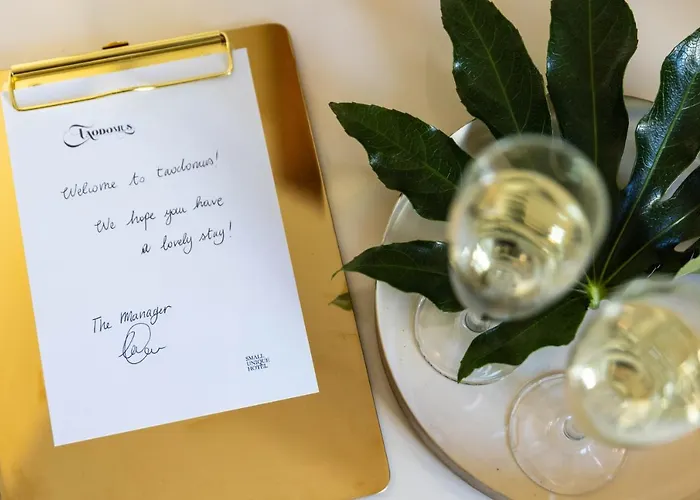 TAODOMUS
Welcome to taodomus!
We hope you have
a lovely stay!
The Manager
SMALL
UNIQUE
HOTEL